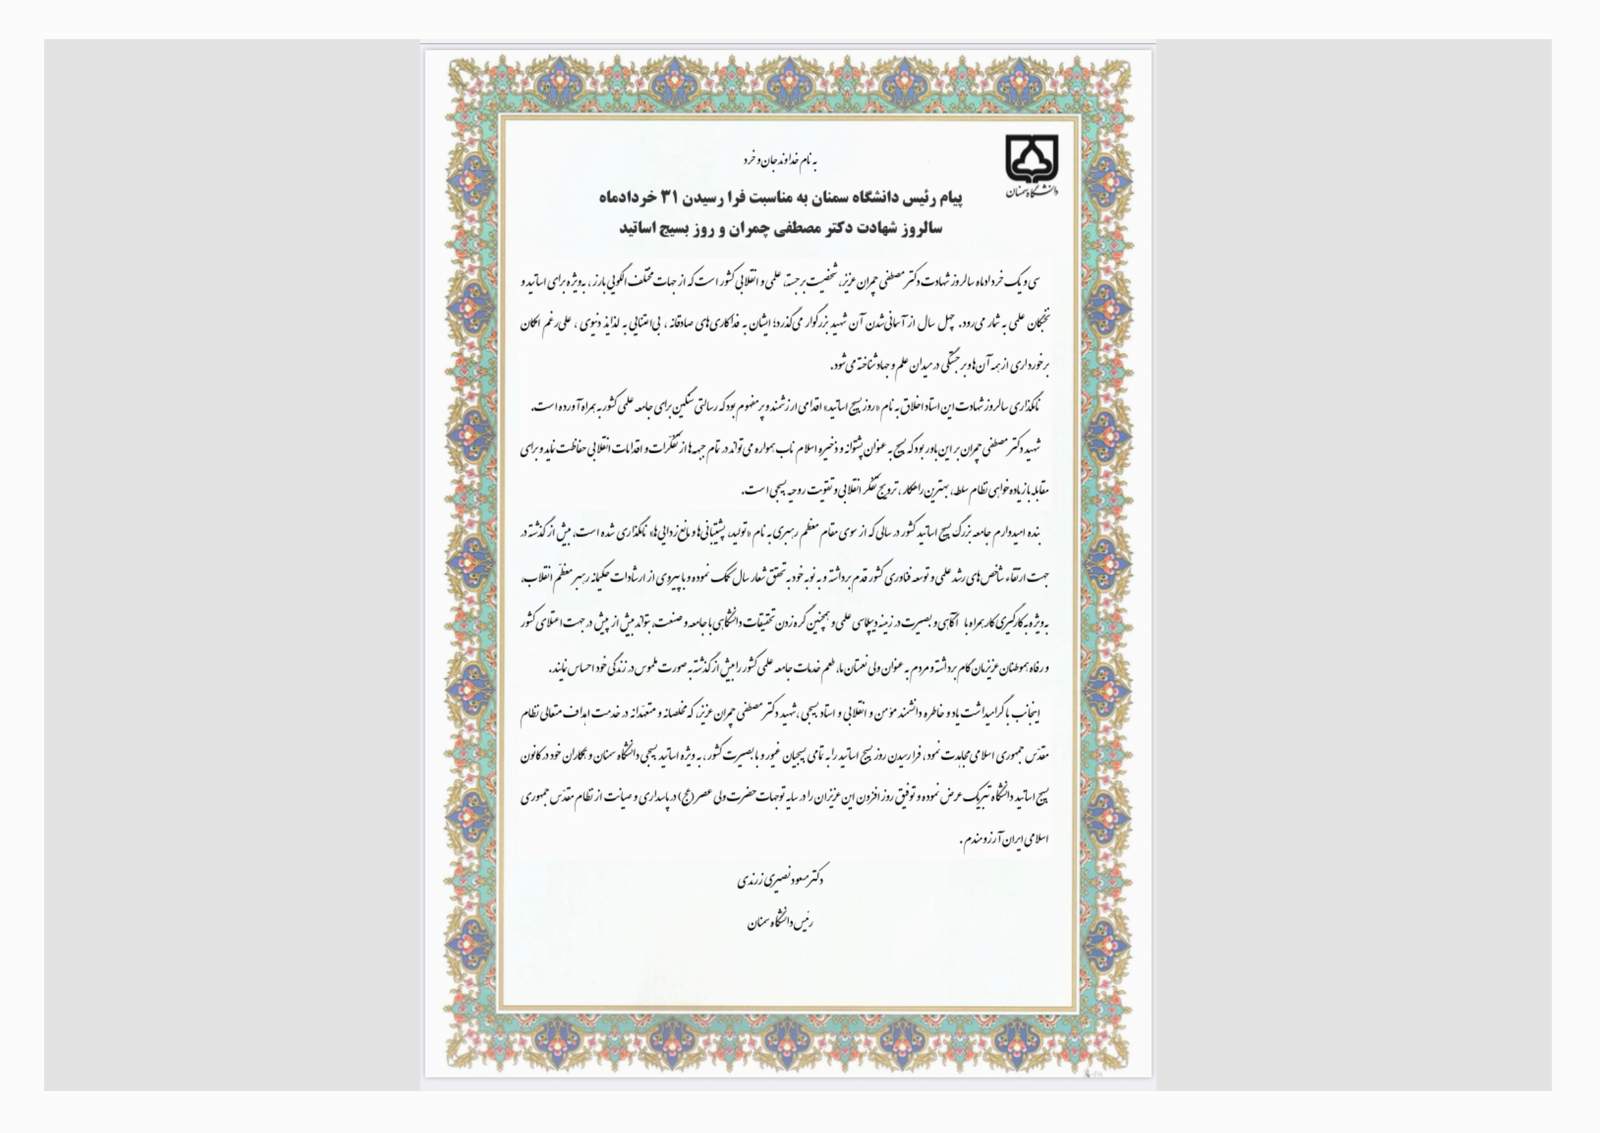 دانشگاه سمنان
به نام خداوند جان و خرد
پیام رئیس دانشگاه سمنان به مناسبت فرا رسیدن ۳۱ خردادماه
سالروز شهادت دکتر مصطفی چمران و روز بسیج اساتید
سی و یک خرداد‌ماه سالروز شهادت دکتر مصطفی چمران عزیز، شخصیت برجسته، علمی و انقلابی کشور است که از جهات مختلف الگویی بارز، به‌ویژه برای اساتید و
نخبگان علمی به شمار می‌رود. چهل سال از آسمانی شدن آن شهید بزرگوار می‌گذرد؛ ایشان به فداکاری‌های صادقانه، بی‌اعتنایی به لذایذ دنیوی، علی‌رغم امکان
برخورداری از همه آن‌ها و برجستگی در میدان علم و جهاد شناخته می‌شود.
نامگذاری سالروز شهادت این استاد اخلاق به نام «روز بسیج اساتید» اقدامی ارزشمند و پر مفهوم بود که رسالتی سنگین برای جامعه علمی کشور به همراه آورده است.
شهید دکتر مصطفی چمران بر این باور بود که بسیج به عنوان پشتوانه و ذخیره اسلام ناب همواره می‌تواند در تمام جبهه‌ها از تفکّرات و اقدامات انقلابی حفاظت نماید و برای
مقابله با زیاده‌خواهی نظام سلطه، بهترین راهکار، ترویج تفکر انقلابی و تقویت روحیه بسیجی است.
بنده امیدوارم جامعه بزرگ بسیج اساتید کشور در سالی که از سوی مقام معظم رهبری به نام «تولید، پشتیبانی‌ها و مانع‌زدایی‌ها» نامگذاری شده است، بیش از گذشته در
جهت ارتقاء شاخص‌های رشد علمی و توسعه فناوری کشور قدم برداشته و به نوبه خود به تحقق شعار سال کمک نموده و با پیروی از ارشادات حکیمانه رهبر معظّم انقلاب،
به ویژه به کارگیری کار همراه با آگاهی و بصیرت در زمینه دیپلماسی علمی و همچنین گره زدن تحقیقات دانشگاهی با جامعه و صنعت، بتواند بیش از پیش در جهت اعتلای کشور
و رفاه هموطنان عزیزمان گام برداشته و مردم به عنوان ولی نعمتان ما، طعم خدمات جامعه علمی کشور را بیش از گذشته به صورت ملموس در زندگی خود احساس نمایند.
اینجانب با گرامیداشت یاد و خاطره دانشمند مؤمن و انقلابی و استاد بسیجی، شهید دکتر مصطفی چمران عزیز، که مخلصانه و متعهدانه در خدمت اهداف متعالی نظام
مقدّس جمهوری اسلامی مجاهدت نمود، فرا رسیدن روز بسیج اساتید را به تمامی بسیجیان غیور و با بصیرت کشور، به ویژه اساتید بسیجی دانشگاه سمنان و همکاران خود در کانون
بسیج اساتید دانشگاه تبریک عرض نموده و توفیق روز افزون این عزیزان را در سایه توجهات حضرت ولی عصر (عج) در پاسداری و صیانت از نظام مقدّس جمهوری
اسلامی ایران آرزومندم.
دکتر مسعود نصیری زرندی
رئیس دانشگاه سمنان